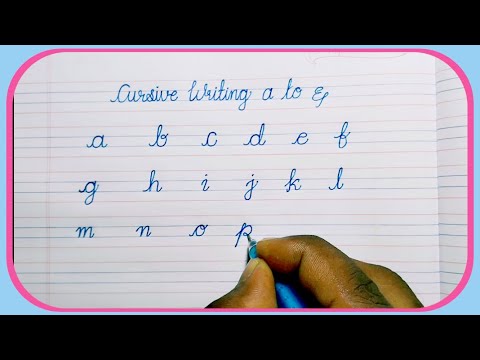 Cursive Writing a to z
a b c d e f
g h i j k l
m n o p